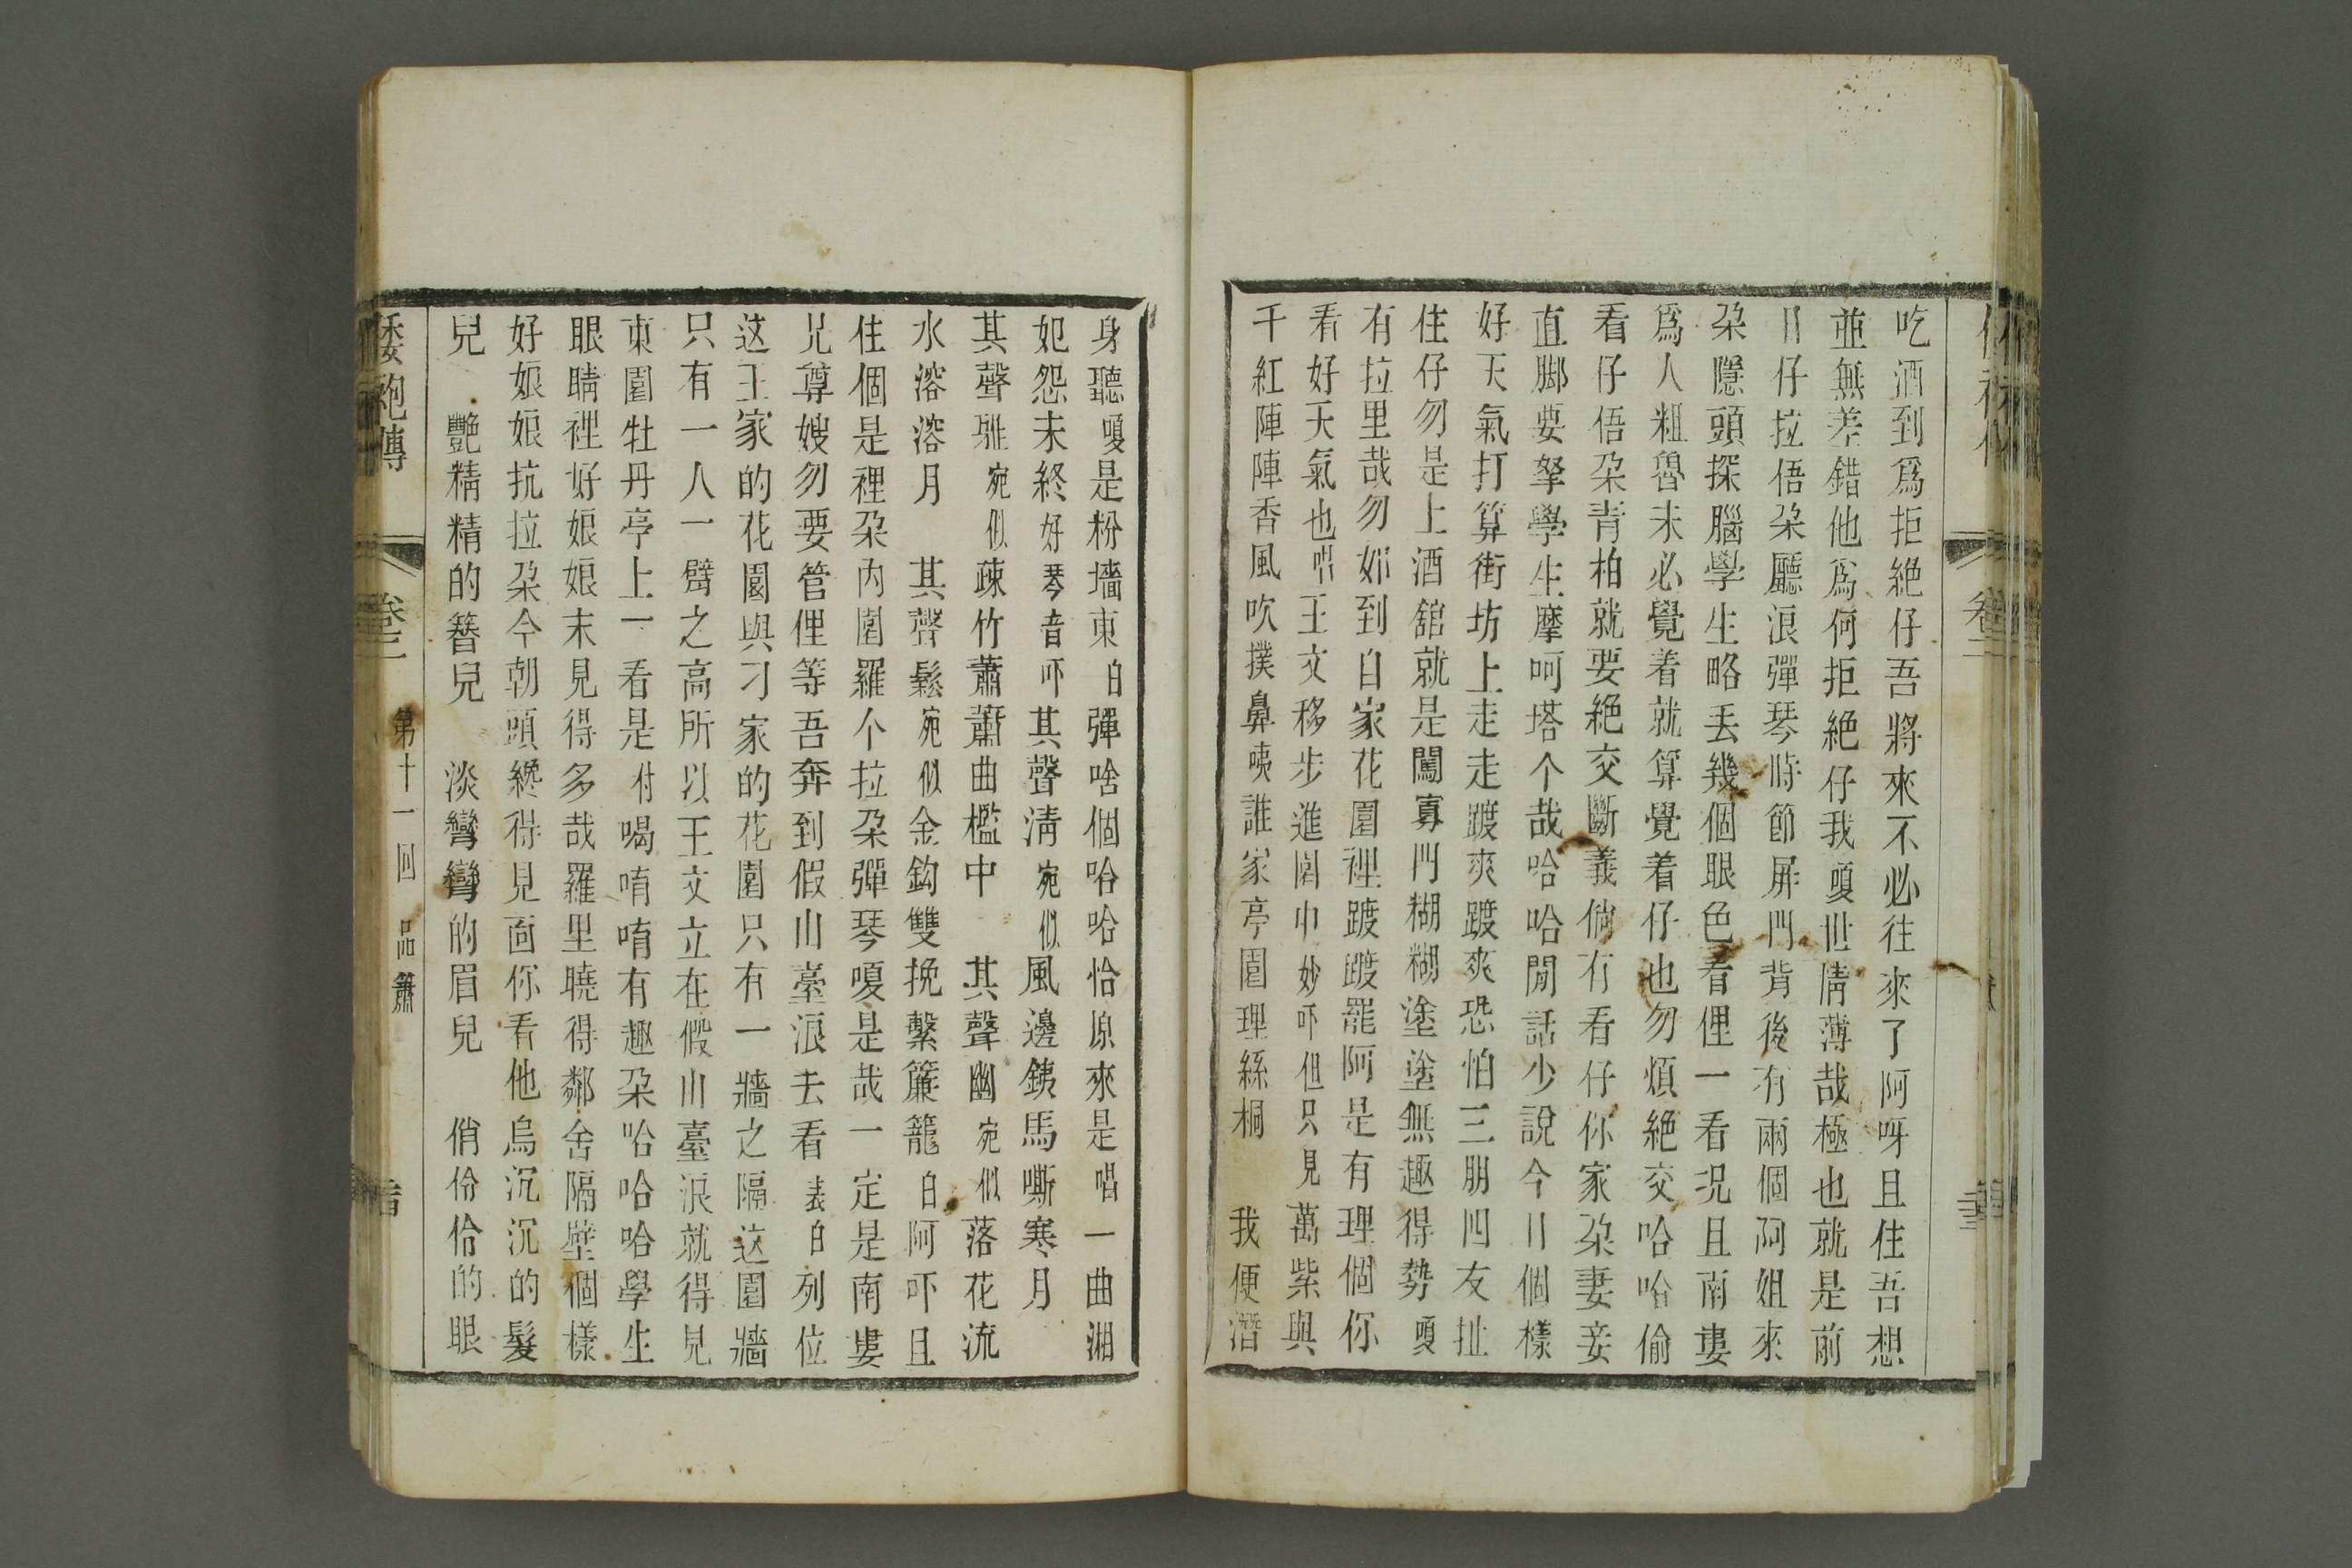 吃酒到爲拒絶仔吾將來不必往來了阿呀且住吾想
並無差錯他爲何拒絶仔我嗄世情薄哉極也就是前
日仔拉俉朶廳浪彈琴時節屏門背後有兩個阿姐來
朶隱頭探腦學生略丢幾個眼色看俚一看况且南婁
爲人粗魯未必覺着就算覺着仔也勿煩絶交哈哈偷
看仔俉朶青柏就要絶交斷義倘有看仔你家朶妻妾
直脚要拏學生摩呵塔个哉哈哈閒話少說今日個樣
好天氣打算街坊上走走踱爽踱爽恐怕三朋四友扯
住仔勿是上酒舘就是闖寡門糊糊塗塗無趣得勢嗄
有拉里哉勿如到自家花園裡踱踱罷阿是有理個你
看好天氣也唱王文移步進園中妙吓但只見萬紫與
千紅陣陣香風吹撲鼻咦誰家亭園理絲桐　我便潛
卷二
身聽嗄是粉墻東白彈啥個哈哈恰原來是唱一曲湘
妃怨未終好琴音吓其聲淸宛似風邊銕馬嘶寒月
其聲雅宛似疎竹蕭蕭曲檻中　其聲幽宛似落花流
水溶溶月　其聲鬆宛似金鈎雙挽繫簾籠白阿吓且
住個是裡朶內園羅个拉朶彈琴嗄是哉一定是南婁
兄尊嫂勿要管俚等吾奔到假山臺浪去看表白列位
这王家的花園與刁家的花園只有一牆之隔这園牆
只有一人一臂之高所以王文立在假山臺浪就得見
東園牡丹亭上一看是付喝唷唷有趣朶哈哈哈學生
眼睛裡好娘娘末見得多哉羅里曉得鄰舍隔壁個樣
好娘娘抗拉朶今朝頭纔得見面你看他烏沉沉的髮
兒　艷精精的簪兒　淡彎彎的眉兒　俏伶伶的眼
倭袍傳　卷二　第十一回　品簫